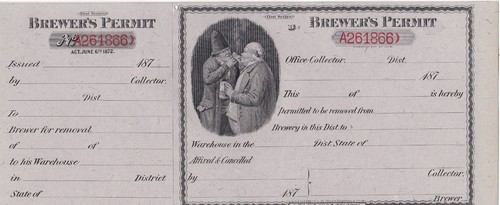 BREWER'S PERMIT
A261866
ACT, JUNE 6TH 1872.
Issued 187
by Collector.
Dist.
To
Brewer for removal
of of
to his Warehouse
in District
State of
BREWER'S PERMIT
A261866
Office Collector. Dist.
187
This of is hereby
permitted to be removed from
Brewery in this Dist. to
Warehouse in the Dist. State of
Affixed & Cancelled
by Collector.
187
Brewer.